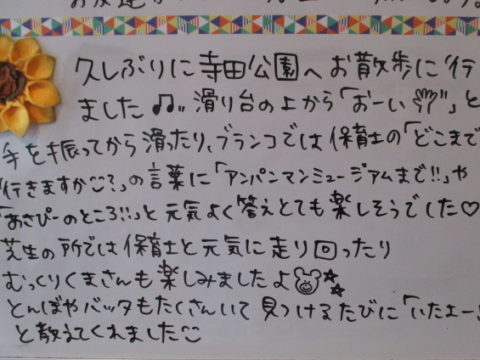 久しぶりに寺田公園へお散歩に行き
ました♫。滑り台の上から「おーい👋」と
手を振ってから滑ったり、ブランコでは保育士の「どこまで
行きますか？」の言葉に「アンパンマンミュージアムまで!!」や
「あさぴーのところ!!」と元気よく答えとても楽しそうでした♡
芝生の所では保育士と元気に走り回ったり
むっくりくまさんも楽しみましたよ
とんぼやバッタもたくさんいて見つけるたびに「いたよー!
と教えてくれました